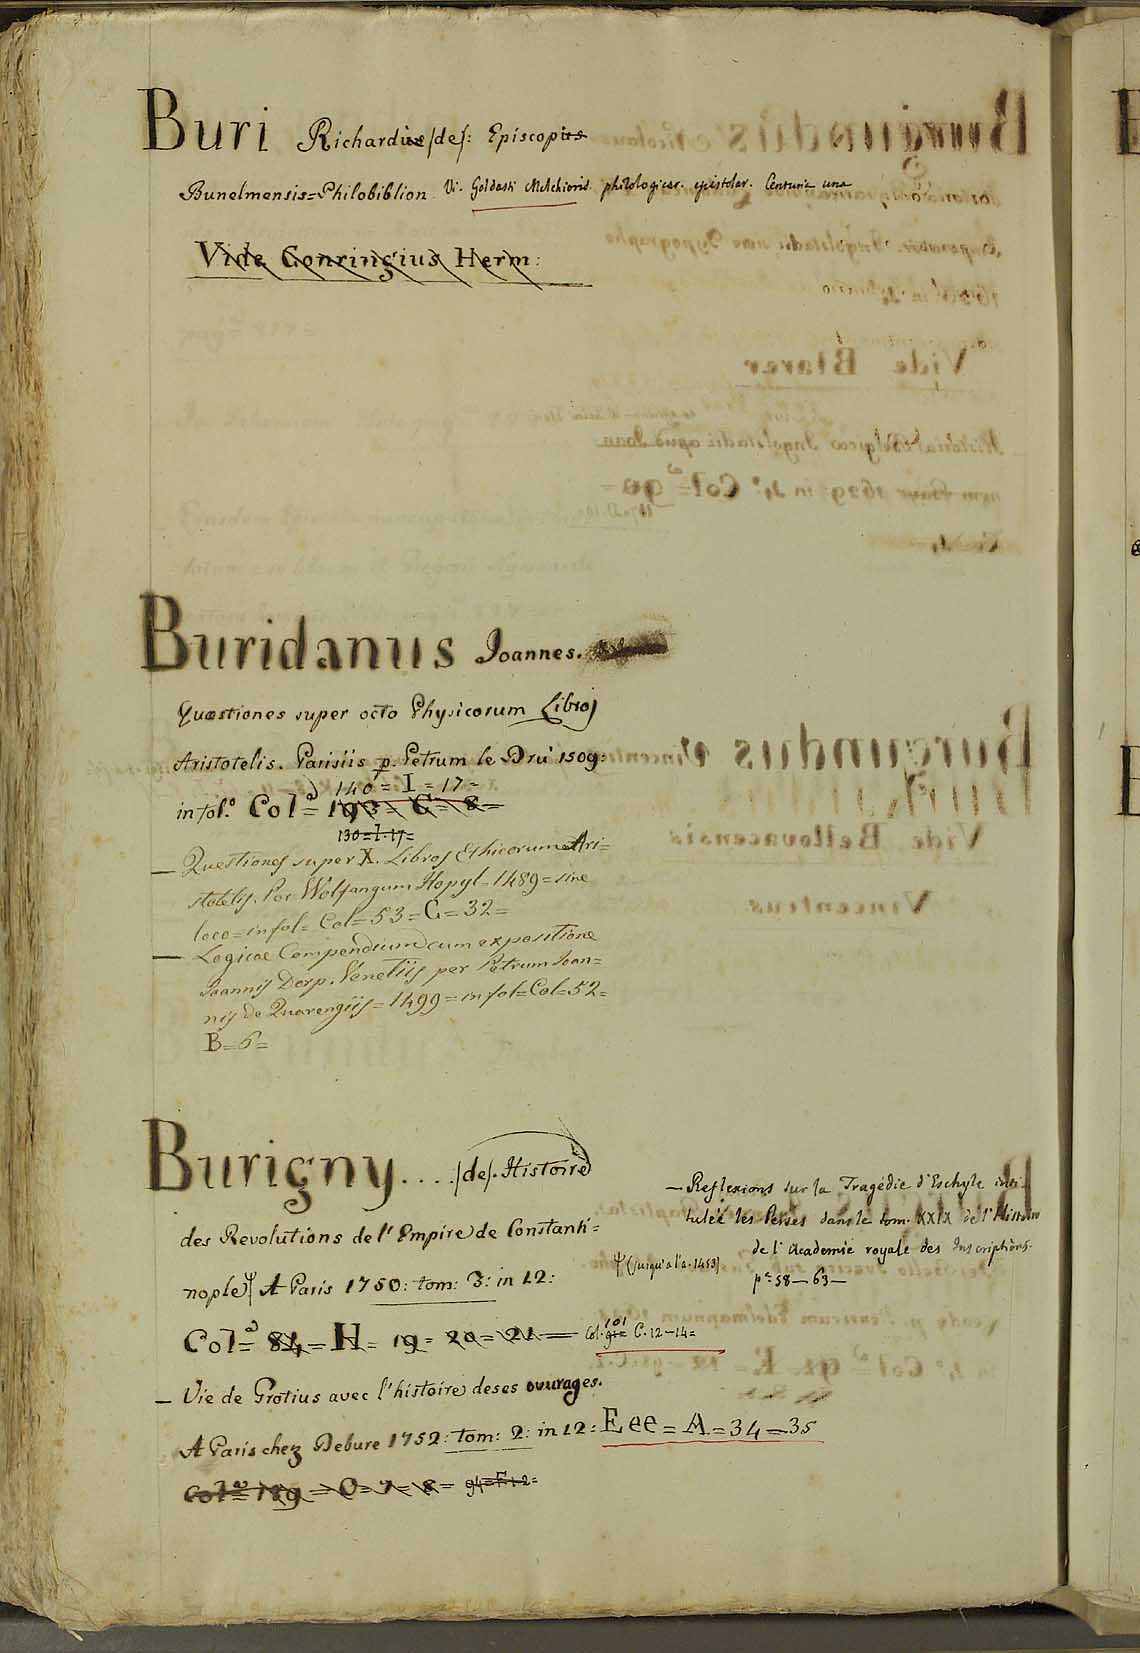 Buri Richardus /de/: Episcopus
Bunelmensis=Philobiblion. Vi. Goldasti Melchioris philologicar. epistolar. Centuria una
Vide Conringius Herm:
Buridanus Joannes.
Quæstiones super octo Physicorum Libros
Aristotelis. Parisiis p. Petrum le Dru 1509:
140 = I = 17 =
in fol.° Col.ª= 193 = C = 8 =
130=I.17=
— Questiones super X. Libros Ethicorum Ari=
stotelis. Per Wolfangum Hopyl=1489=sine
loco=infol= Col=53=G=32=
— Logicae Compendium cum expositione
Joannis Dorp. Venetiis per Petrum Joan=
nis de Quarengiis=1499=infol=Col=52=
B=6=
Burigny.... /de/. Histoire
des Revolutions de l'Empire de Constanti=
nople / A Paris 1750: tom: 3: in 12:
(jusqu'a l'a. 1453)
Col=ª 84 = H = 19 = 20 = 21 = Col. 101 C. 12-14=
— Vie de Grotius avec l'histoire de ses ouvrages.
A Paris chez Debure 1752: tom: 2: in 12: Eee = A = 34 = 35
Col=ª 189 = O = 7 = 8 = 94=F.1.2=
— Reflexions sur la Tragédie d'Eschyle inti-
tulée les Perses dans le tom. XXIX de l'Histoire
de l'Academie royale des Inscriptions.
p.ª 58 — 63 —